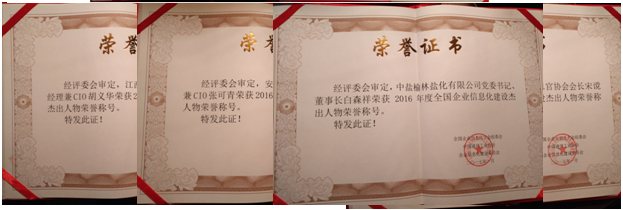 荣誉
经评委会审定，江西
经理兼CIO胡义华荣获2
杰出人物荣誉称号。
特发此证！
荣誉
经评委会审定，安
兼CIO张可青荣获2016
人物荣誉称号。
特发此证！
荣誉证书
经评委会审定，中盐榆林盐化有限公司党委书记、
董事长白森样荣获 2016 年度全国企业信息化建设杰
出人物荣誉称号。
特发此证！
官协会会长宋
杰出人物荣誉称